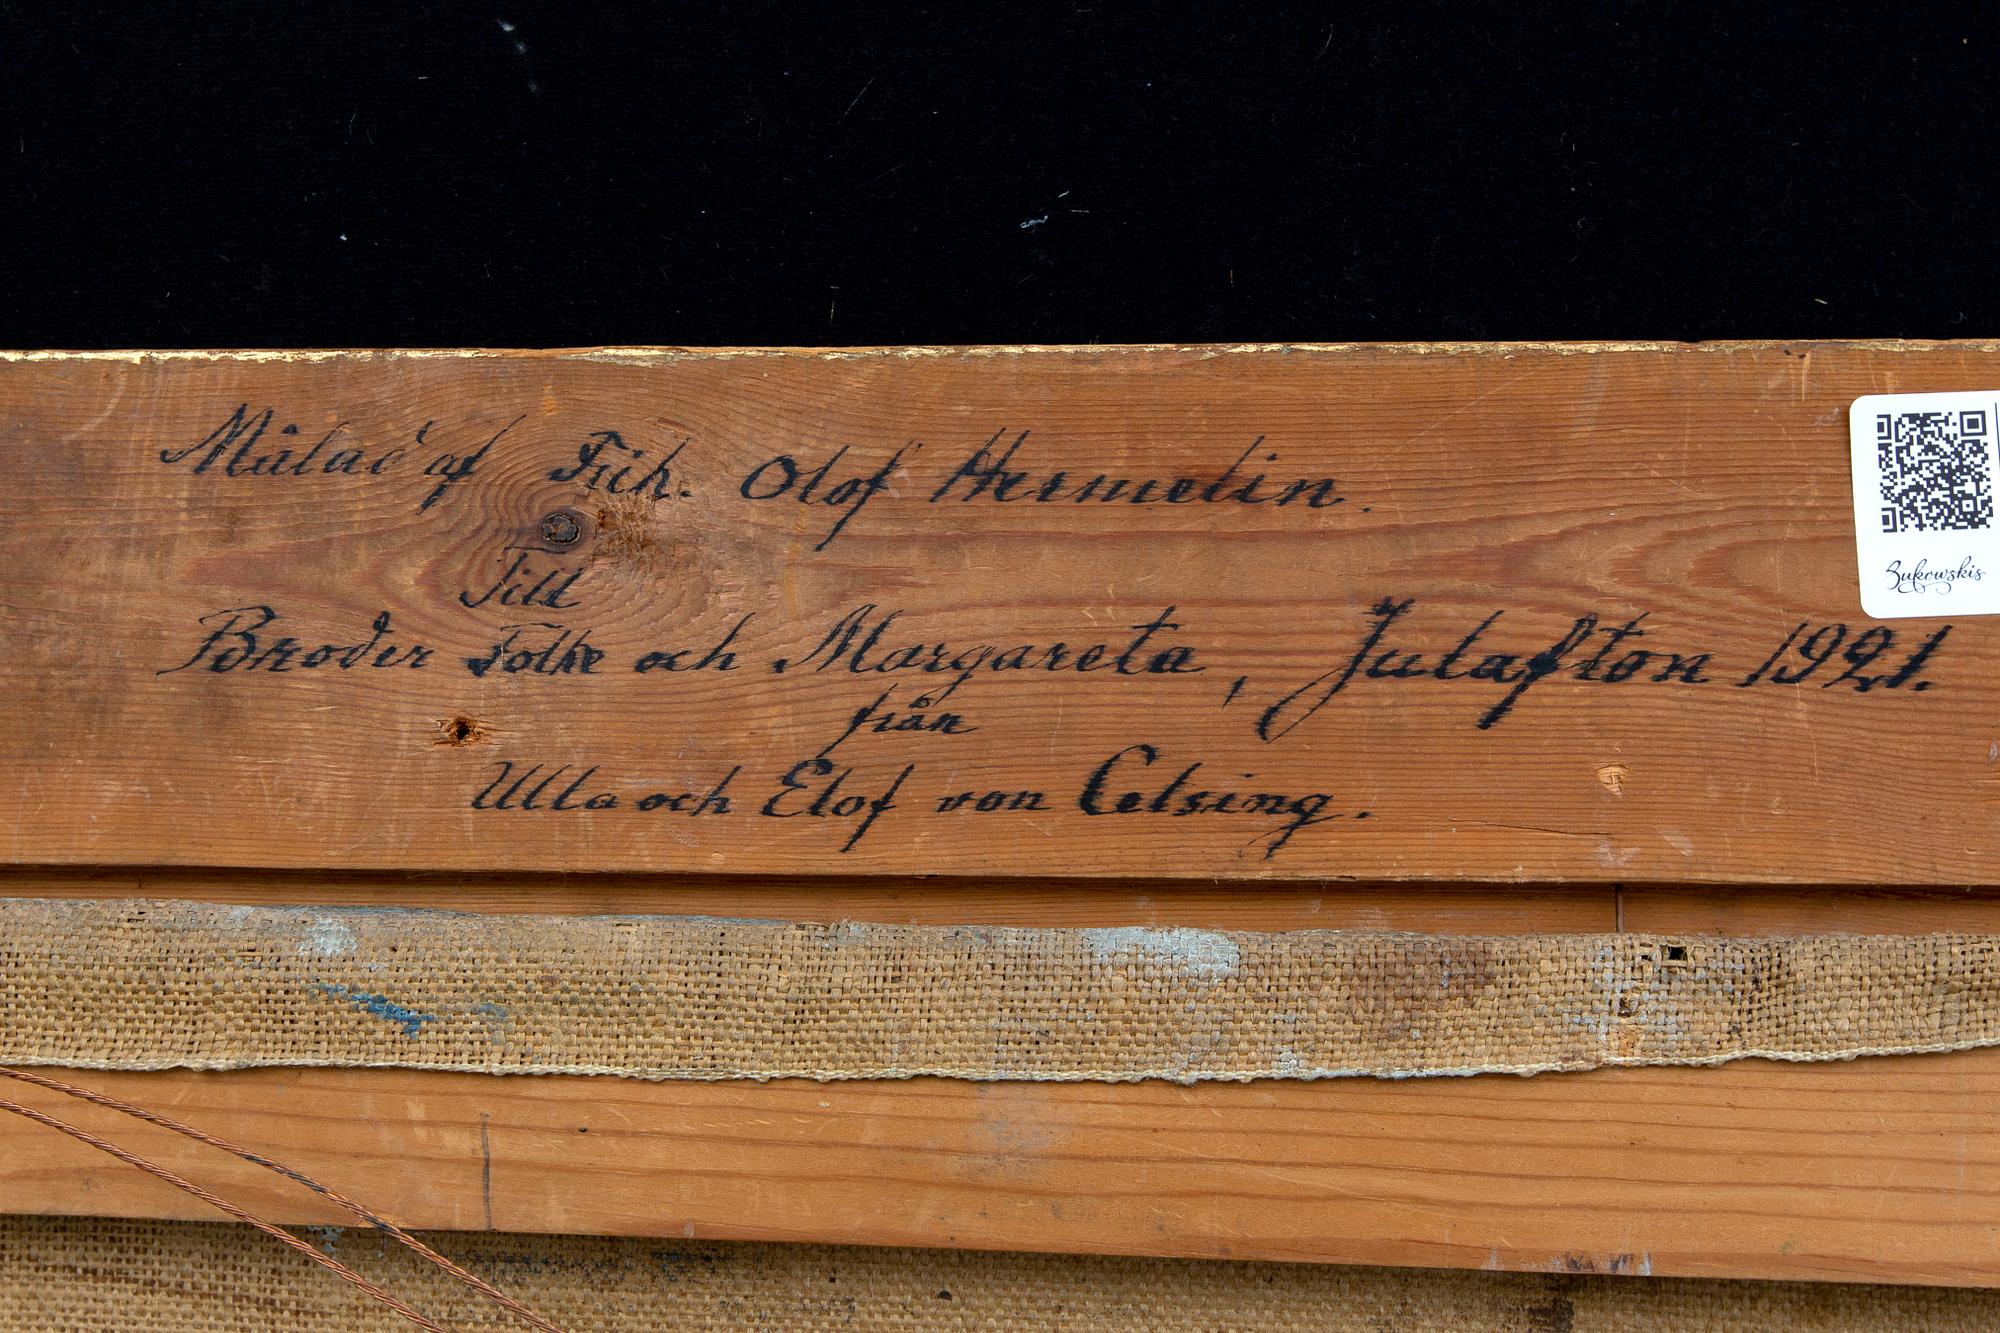 Målad af Frih. Olof Hermelin.
Till
Broder Folke och Margareta, Julafton 1921.
från
Ulla och Elof von Celsing.
Bukowskis